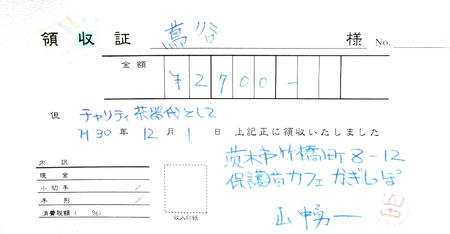 領収証 蔦谷 様 No.
金額 ¥2700-
但 チャリティ茶器代として
H30年12月1日 上記正に領収いたしました
茨木市竹橋町8-12
保護猫カフェ かぎしっぽ
山中勇一
内訳
現金
小切手 /
手形 /
消費税額( %)
収入印紙